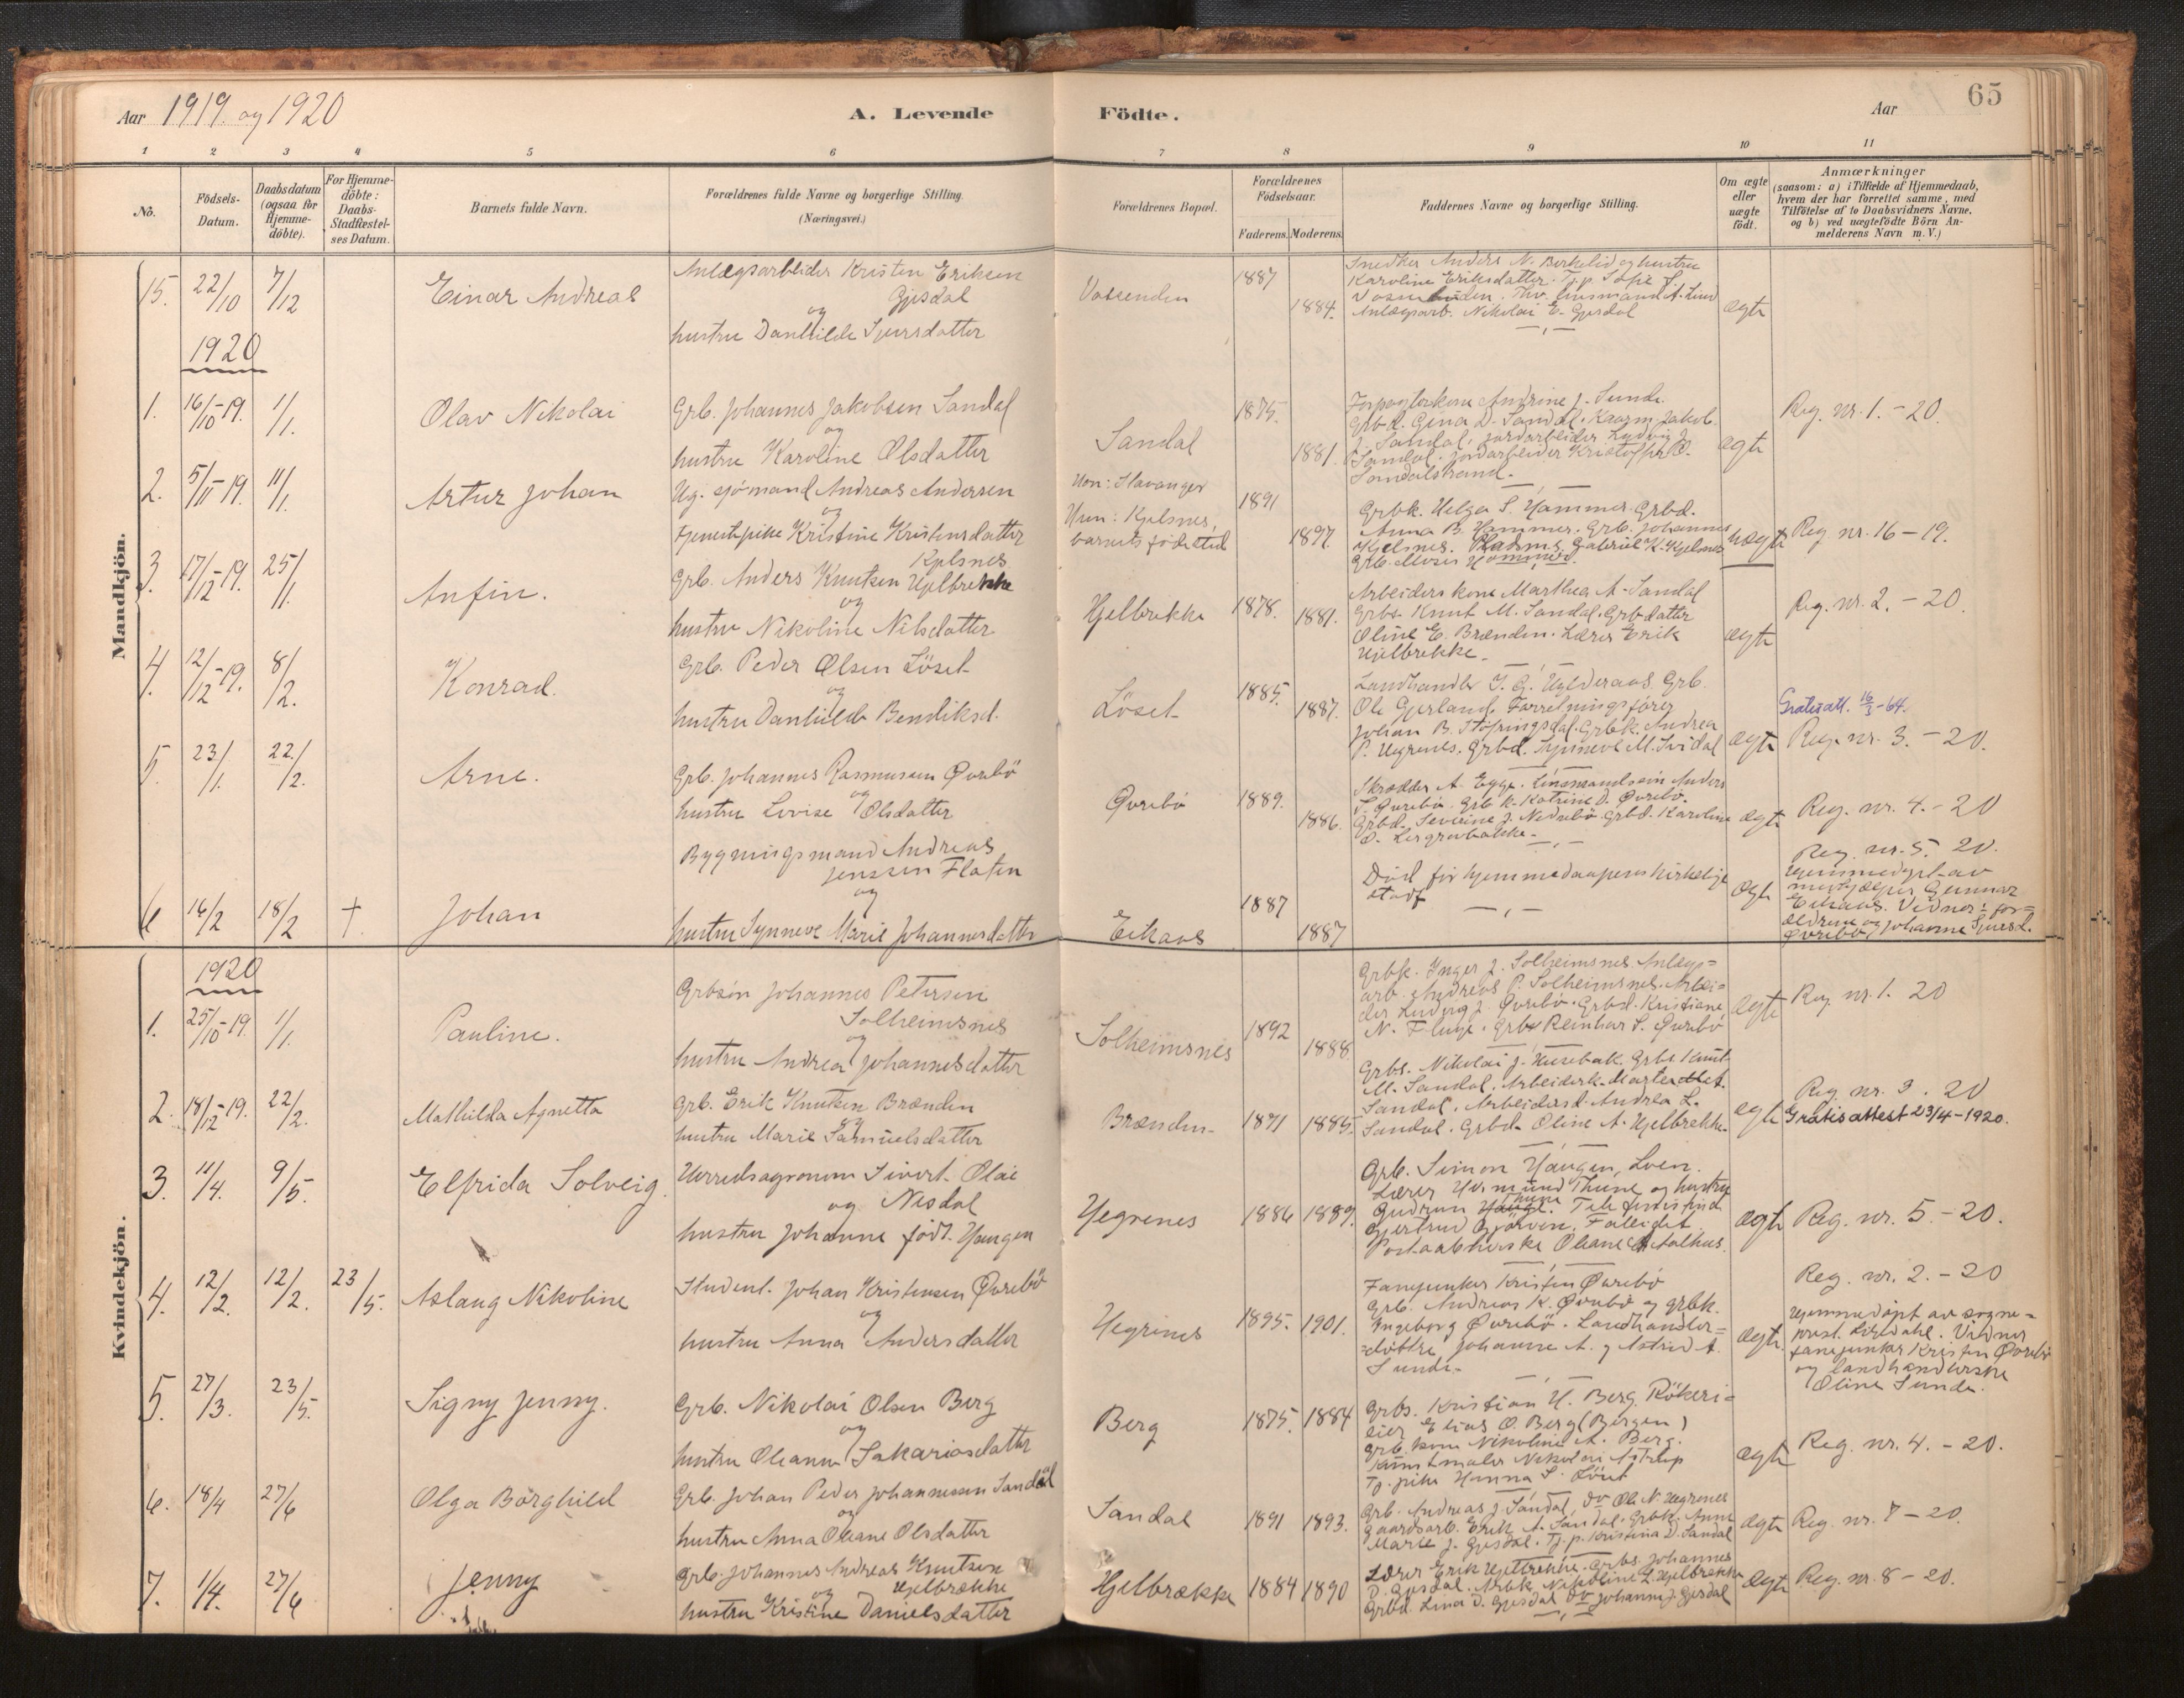 Aar 1919 og 1920
A. Levende Födte.
Aar
65
1 2 3 4 5 6 7 8 9 10 11
No.
Födsels-
Datum.
Daabsdatum
(ogsaa for
Hjemme-
döbte).
For Hjemme-
döbte:
Daabs-
Stadfæstel-
ses Datum.
Barnets fulde Navn.
Forældrenes fulde Navne og borgerlige Stilling.
(Næringsvei.)
Forældrenes Bopæl.
Forældrenes
Födselsaar.
Faderens. Moderens.
Faddernes Navne og borgerlige Stilling.
Om ægte
eller
uægte
födt.
Anmærkninger
(saasom: a) i Tilfælde af Hjemmedaab,
hvem der har forrettet samme, med
Tilföielse af to Daabsvidners Navne,
og b) ved uægtefödte Börn An-
melderens Navn m. V.)
Mandkjön.
15. 22/10 7/12 Einar Andreas
Anlægsarbeider Kristen Eriksen
Gjesdal
og
hustru Danhilde Sjursdatter
Vassenden 1887 1884.
Snedker Anders N. Berkelid og hustru
Karoline Eriksdatter. Tj.p. Sofie J.
Anlægsarb. Nikolai E. Gjesdal
ægte
1920
1. 16/10-19. 1/1. Olav Nikolai
Grb. Johannes Jakobsen Sandal
og
hustru Karoline Olsdatter
Sandal 1875. 1881.
Forpagterkone Andrine J. Sunde.
Grbd. Gina D. Sandal. Kaarm. Jakob
J. Sandal, jordarbeider Ludvig J.
Sandal. jordarbeider Kristoffer O.
Sandalstrand.
ægte
Reg. nr. 1. - 20.
2. 5/11-19. 11/1. Artur Johan
Ug. sjömand Andreas Andersen
og
tjenestpike Kristine Kristensdatter
Kjelsnes
Han: Stavanger
Hun: Kjelsnes,
barnets födested
1891 1897.
Grbk. Helga S. Hammer. Grbd.
Anna B. Hammer. Grb. Johannes
Kjelsnes. Gabriel K. Kjelsnes
Grb. Moses Hammer.
uægte
Reg nr. 16 - 19.
3. 17/12-19. 25/1. Anfin.
Grb. Anders Knutsen Hjelbrekke
og
hustru Nikoline Nilsdatter
Hjelbrekke 1878. 1881.
Arbeiderskone Marthea A. Sandal
Grbs. Knut M. Sandal. Grbdatter
Oline E. Brænden. Lærer Erik
Hjelbrekke.
ægte
Reg. nr. 2. - 20.
4. 12/12-19. 8/2. Konrad.
Grb. Peder Olsen Löset
og
hustru Danhilde Bendiksd.
Löset 1885. 1887.
Landhandler J. G. Hylderaas. Grb.
Ole Gjerland. Forretningsförer
Johan B. Støfringsdal. Grbk. Andrea
P. Hegrenes. Grbd. Synneve M. Svidal
ægte
Gratisatt. 16/3-64.
Reg. nr. 3. - 20.
5. 23/1. 22/2. Arne.
Grb. Johannes Rasmusen Øvrebö
og
hustru Lovise Olsdatter
Øvrebö 1889. 1886.
Skrædder A. Egge. Lensmandssön Anders
S. Øvrebö. Grbk. Katrine D. Øvrebö.
Grbd. Severine J. Nedrebö. Grbd. Karoline
O. Lergrovbakke.
ægte
Reg. nr. 4. - 20
6 16/2 18/2 † Johan
Bygningsmand Andreas
Jenssen Flaten
og
hustru Synneve Marie Johannesdatter
Eikaas 1887 1887
Död för hjemmedaapens kirkelige
stadf
ægte
Reg. nr. 5. 20.
Hjemmedöpt av
Gunnar
Eikaas. Vidner: for-
ældrene og Johanne Sjursd.
Øvrebö
Kvindekjön.
1920
1. 25/10-19. 1/1. Pauline.
Grbsön Johannes Petersen
Solheimsnes
og
hustru Andrea Johannesdatter
Solheimsnes 1892 1888
Grbk. Inger J. Solheimsnes. Anlægs=
arb. Andreas P. Solheimsnes. Arbei=
der Ludvig J. Øvrebö. Grbd. Kristiane
N. Fluge. Grbs Reinhar S. Øvrebö
ægte
Reg nr. 1. 20
2. 18/12-19. 22/2. Mathilda Agnetta
Grb. Erik Knutsen Brænden
og
hustru Marie Samuelsdatter
Brænden 1891 1885.
Grbs. Nikolai J. Husebak. Grbs Knut
M. Sandal. Arbeiderk. Martea
Sandal. Arbeidersd. Andrea L.
Sandal. Grbd. Oline A. Hjelbrekke
ægte
Reg. nr. 3. 20
Gratisattest 23/4-1920.
3. 11/4. 9/5. Elfrida Solveig.
Herredsagronom Sivert Olai
og Nesdal
hustru Johanne født Haugen
Hegrenes 1886 1889.
Grb. Simon Haugen, Loen.
Lærer Hermund Thune og hustru
Gudrun Thune.
Gjertrud Gjörven, Faleidet.
Postaabnerske Oleane A. Aalhus.
ægte
Reg. nr. 5. - 20.
4. 12/2. 12/2. 23/5. Aslaug Nikoline
Student Johan Kristensen Øvrebö
og
hustru Anna Andersdatter
Hegrenes 1895. 1901.
Fanejunker Kristen Øvrebö
Grb. Andreas K. Øvrebö og grbk.
Ingeborg Øvrebö. Landhandler=
döttre Johanne A. og Astrid A.
Sunde.
ægte
Reg. nr. 2. - 20
Hjemmedöpt av sogne=
prest. Vidner
fanejunker Kristen Øvrebö
og landhandlerske
Oline Sunde.
5. 27/3. 23/5. Signy Jenny.
Grb. Nikolai Olsen Berg
og
hustru Oleanna Sakariasdatter
Berg 1875. 1884
Grbs. Kristian H. Berg. Rökeri=
eier Elias O. Berg (Bergen)
Grb.kone Nikoline A. Berg.
Kunstmaler Nikolai Astrup
Tj.pike Hanna S. Löset
ægte
Reg. nr. 4. - 20.
6. 18/4 27/6 Olga Borghild
Grb. Johan Peder Johannessen Sandal
og
hustru Anna Oleane Olsdatter
Sandal 1891 1893.
Grb. Andreas J. Sandal, do Ole N. Hegrenes
Gaardsarb. Erik A. Sandal. Grbk. Anne
Marie J. Gjesdal. Tj.p. Kristina D. Sandal
ægte
Reg. nr. 7 - 20.
7. 1/4. 27/6 Jenny
Grb. Johannes Andreas Knutsen
Hjelbrække
og
hustru Kristine Danielsdatter
Hjelbrække 1884 1890
Lærer Erik Hjelbrekke. Grbs. Johannes
D. Gjesdal. Arbk. Nikoline L. Hjelbrekke
Grbd. Lina D. Gjesdal do Johanne J. Gjesdal
ægte
Reg. nr. 8 - 20.